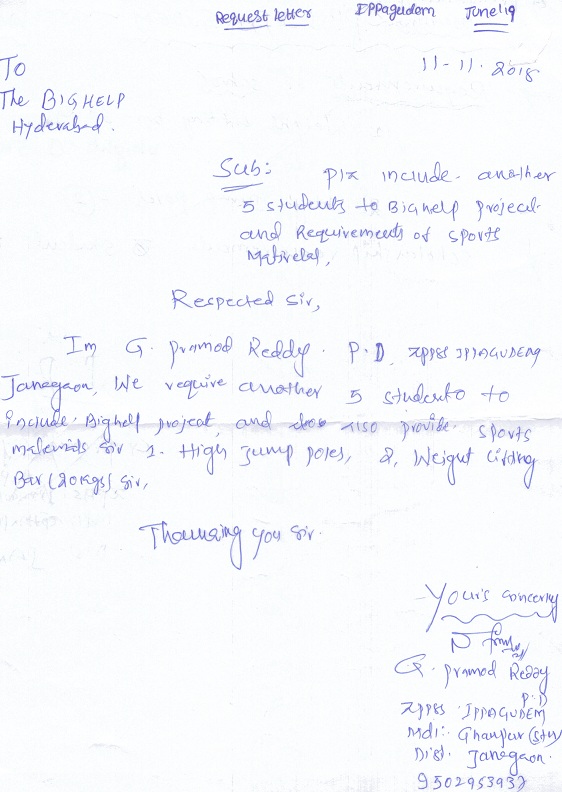 Request letter IPPagudem June'19
11-11.2018
To
The BIGHELP
Hyderabad.
Sub: plz include another
5 students to Bighelp project
and Requirements of sports
Matirelal,
Respected Sir,
Im G. pramod Reddy. P.D, ZPPSS IPPAGUDEM
Janagaon, We require another 5 students to
include Bighelp project, and also provide sports
materials sir 1. High Jump poles, 2, Weight Lifting
Bar (20kgs) Sir,
Thanking you Sir.
Yours concerny
G. pramod Reddy
P.D
ZPPSS IPPAGUDEM
Mdl: Ghanpur (Stn)
Dist. Janagaon.
9502953937